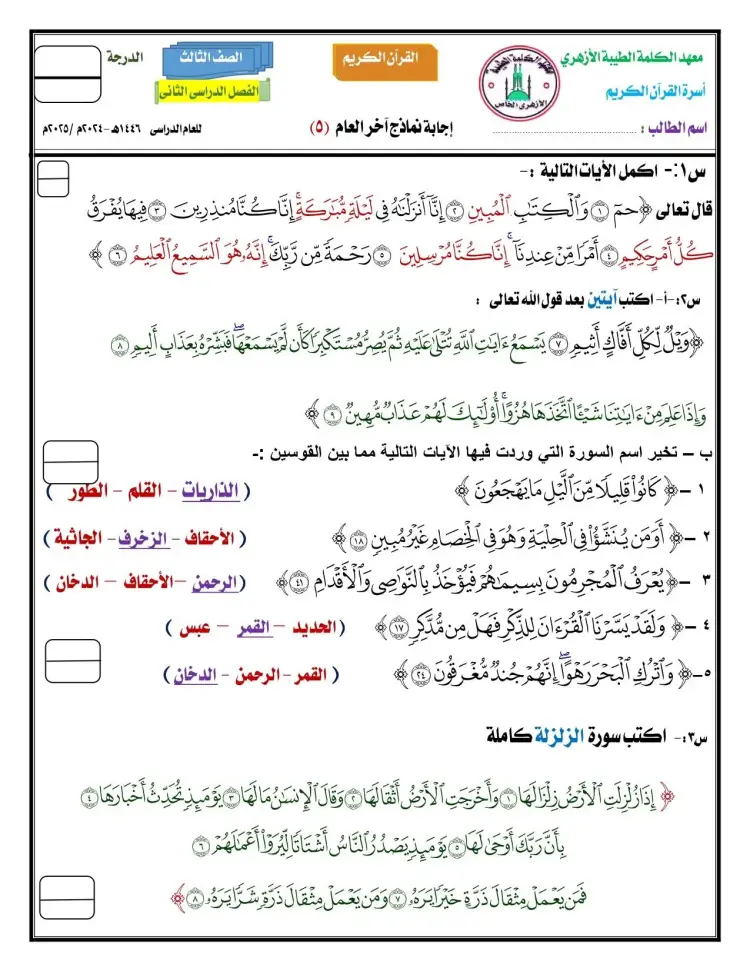 معهد الكلمة الطيبة الأزهري
القرآن الكريم
الصف الثالث
الدرجة
أسرة القرآن الكريم
معهد الكلمة الطيبة
الأزهري الخاص
الفصل الدراسى الثانى
اسم الطالب : ..............................
إجابة نماذج آخر العام (٥)
للعام الدراسى ١٤٤٦هـ -٢٠٢٤م /٢٠٢٥م
س١:- اكمل الأيات التالية :-
قال تعالى ﴿حمٓ ١ وَٱلْكِتَٰبِ ٱلْمُبِينِ ٢ إِنَّآ أَنزَلْنَٰهُ فِى لَيْلَةٍ مُّبَٰرَكَةٍ ۚ إِنَّا كُنَّا مُنذِرِينَ ٣ فِيهَا يُفْرَقُ
كُلُّ أَمْرٍ حَكِيمٍ ٤ أَمْرًا مِّنْ عِندِنَآ ۚ إِنَّا كُنَّا مُرْسِلِينَ ٥ رَحْمَةً مِّن رَّبِّكَ ۚ إِنَّهُۥ هُوَ ٱلسَّمِيعُ ٱلْعَلِيمُ ٦ ﴾
س٢:-أ- اكتب آيتين بعد قول الله تعالى :
﴿وَيْلٌ لِّكُلِّ أَفَّاكٍ أَثِيمٍ ٧ يَسْمَعُ ءَايَٰتِ ٱللَّهِ تُتْلَىٰ عَلَيْهِ ثُمَّ يُصِرُّ مُسْتَكْبِرًا كَأَن لَّمْ يَسْمَعْهَا ۖ فَبَشِّرْهُ بِعَذَابٍ أَلِيمٍ ٨
وَإِذَا عَلِمَ مِنْ ءَايَٰتِنَا شَيْـًٔا ٱتَّخَذَهَا هُزُوًا ۚ أُو۟لَٰٓئِكَ لَهُمْ عَذَابٌ مُّهِينٌ ٩ ﴾
ب – تخير اسم السورة التي وردت فيها الآيات التالية مما بين القوسين :-
١ -﴿ كَانُوا۟ قَلِيلًا مِّنَ ٱلَّيْلِ مَا يَهْجَعُونَ ﴾ ( الذاريات – القلم – الطور )
٢ -﴿ أَوَمَن يُنَشَّؤُا۟ فِى ٱلْحِلْيَةِ وَهُوَ فِى ٱلْخِصَامِ غَيْرُ مُبِينٍ ١٨ ﴾ ( الأحقاف - الزخرف- الجاثية )
٣ -﴿ يُعْرَفُ ٱلْمُجْرِمُونَ بِسِيمَٰهُمْ فَيُؤْخَذُ بِٱلنَّوَٰصِى وَٱلْأَقْدَامِ ٤١ ﴾ (الرحمن –الأحقاف – الدخان )
٤ -﴿ وَلَقَدْ يَسَّرْنَا ٱلْقُرْءَانَ لِلذِّكْرِ فَهَلْ مِن مُّدَّكِرٍ ١٧ ﴾ ( الحديد – القمر – عبس )
٥-﴿ وَٱتْرُكِ ٱلْبَحْرَ رَهْوًا ۖ إِنَّهُمْ جُندٌ مُّغْرَقُونَ ٢٤ ﴾ ( القمر -الرحمن - الدخان )
س٣:- اكتب سورة الزلزلة كاملة
﴿ إِذَا زُلْزِلَتِ ٱلْأَرْضُ زِلْزَالَهَا ١ وَأَخْرَجَتِ ٱلْأَرْضُ أَثْقَالَهَا ٢ وَقَالَ ٱلْإِنسَٰنُ مَا لَهَا ٣ يَوْمَئِذٍ تُحَدِّثُ أَخْبَارَهَا ٤
بِأَنَّ رَبَّكَ أَوْحَىٰ لَهَا ٥ يَوْمَئِذٍ يَصْدُرُ ٱلنَّاسُ أَشْتَاتًا لِّيُرَوْا۟ أَعْمَٰلَهُمْ ٦
فَمَن يَعْمَلْ مِثْقَالَ ذَرَّةٍ خَيْرًا يَرَهُۥ ٧ وَمَن يَعْمَلْ مِثْقَالَ ذَرَّةٍ شَرًّا يَرَهُۥ ٨ ﴾